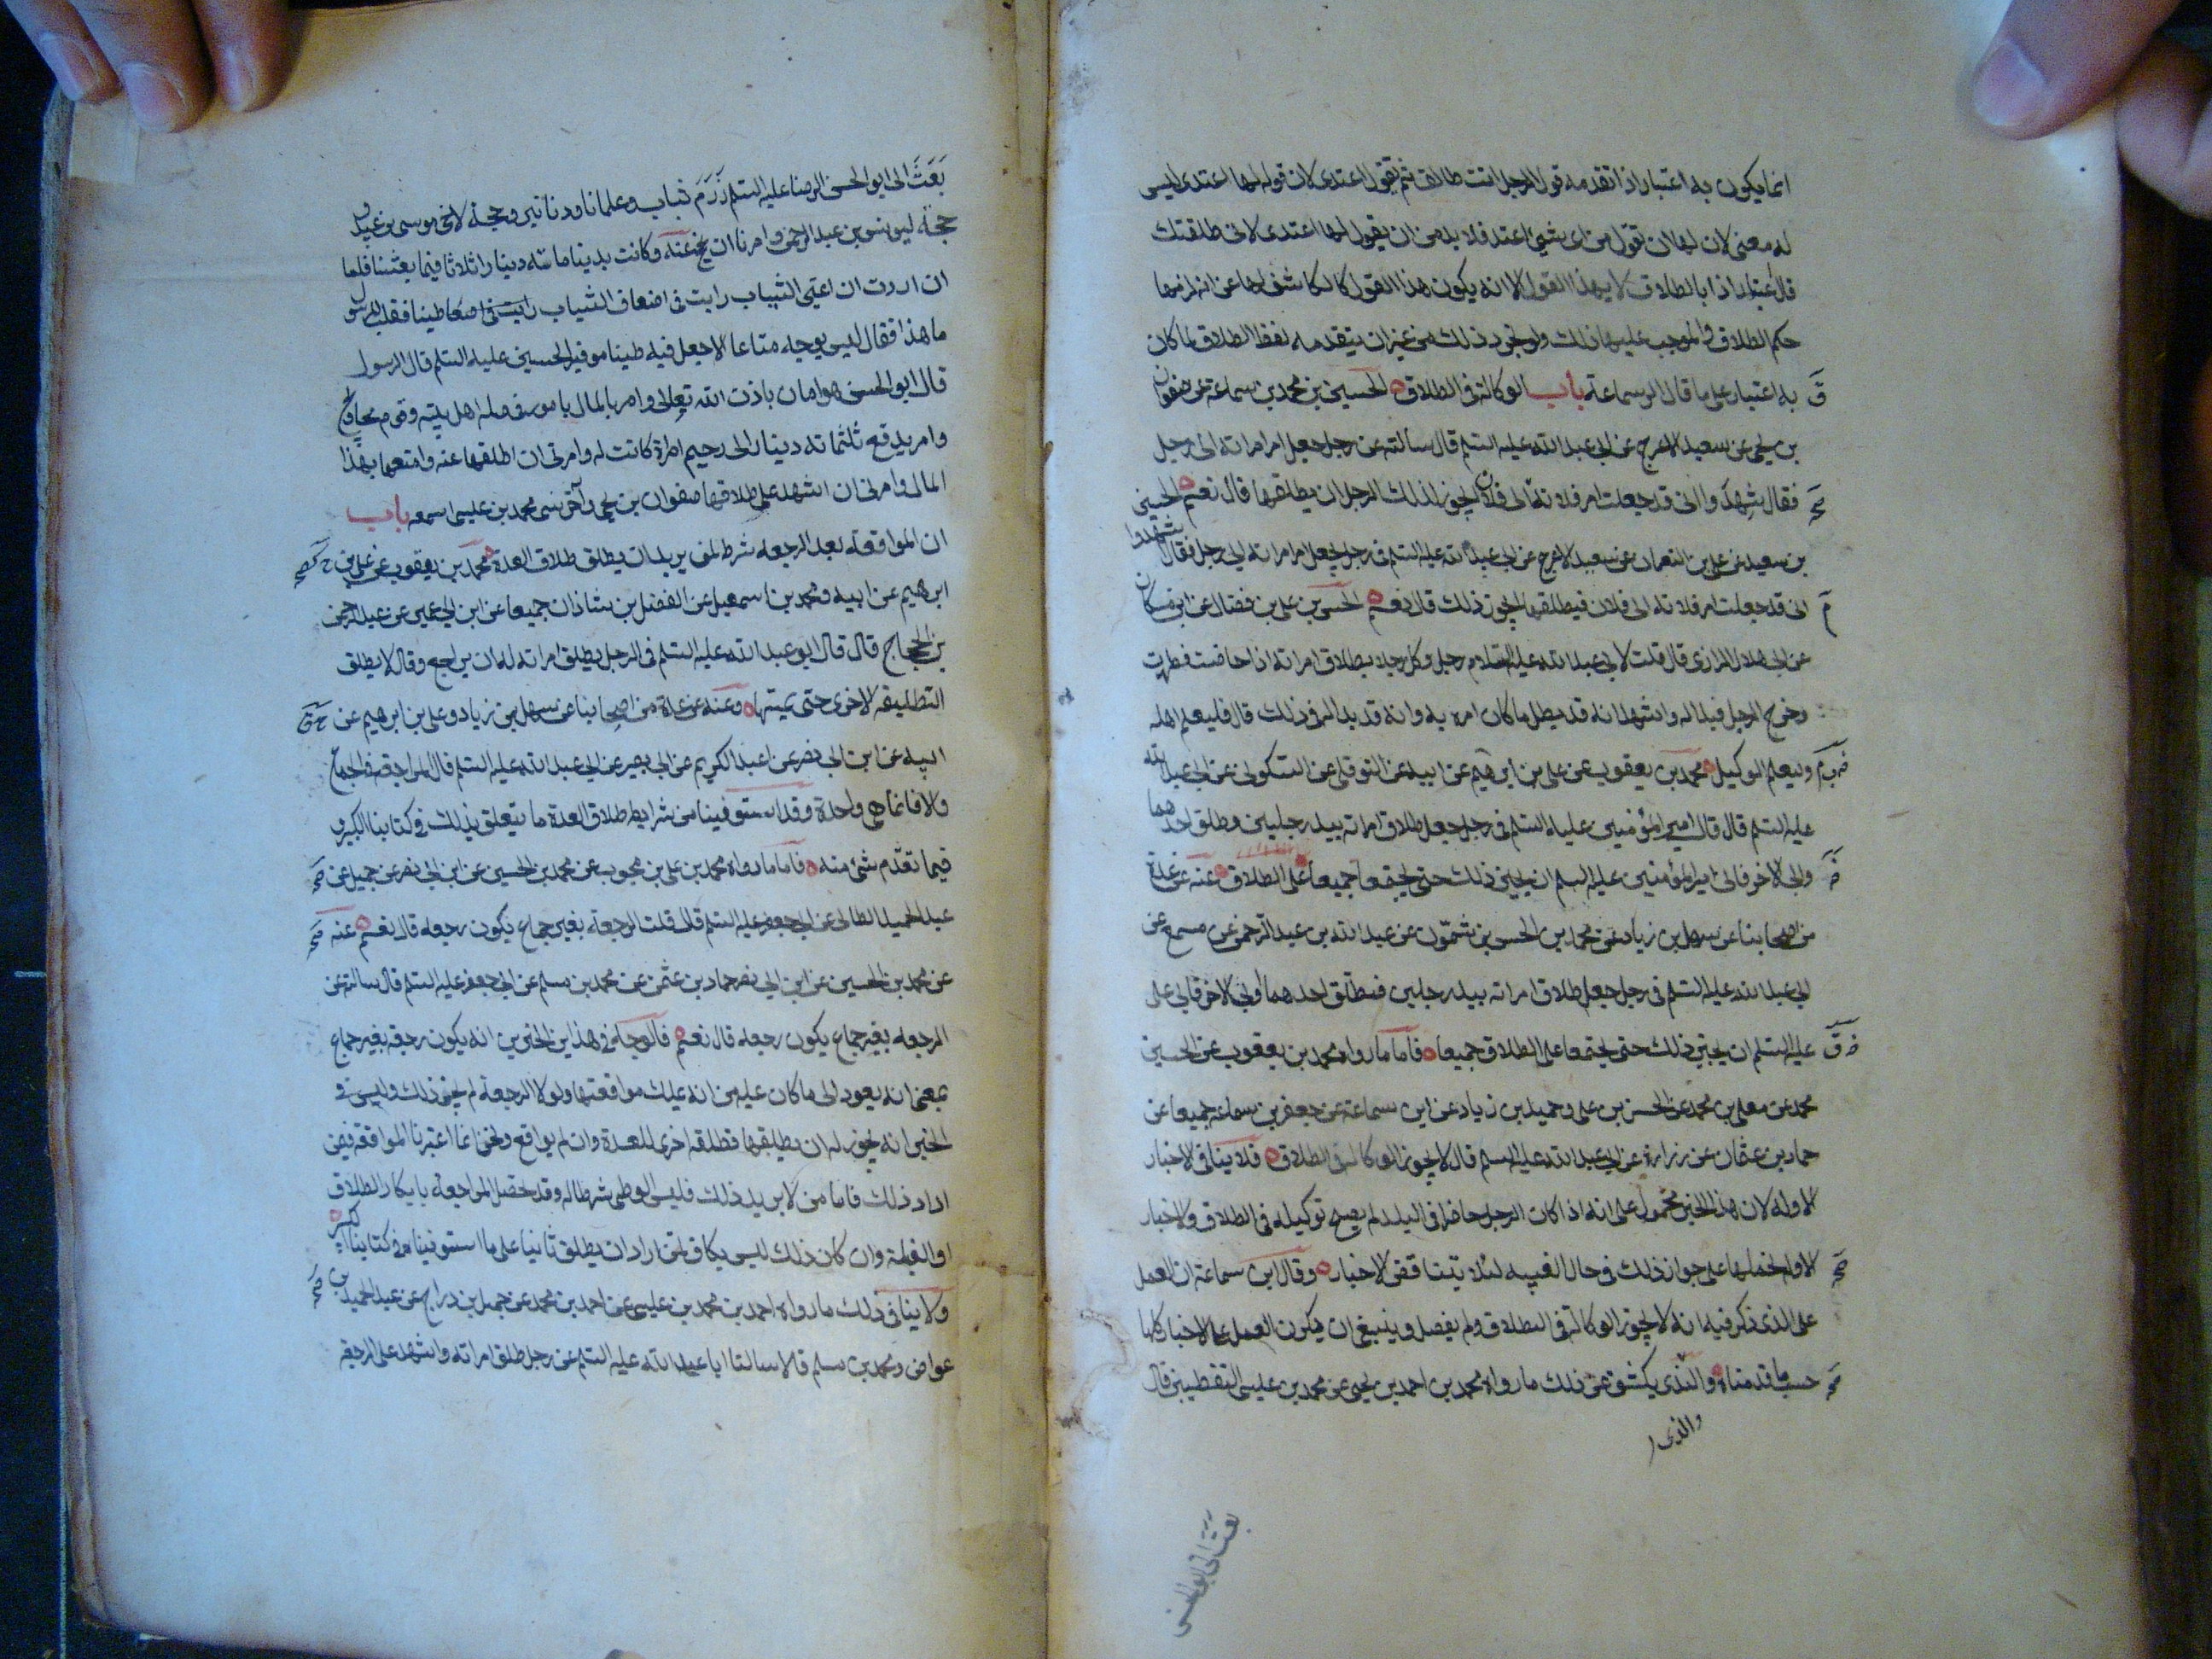 انما يكون به اعتبار اذا تقدمه قول الرجل انت طالق ثم يقول اعتدى لان قوله لها اعتدى ليس
له معنى لان لها ان تقول من اى شيئ اعتد فلا بد من ان يقول لها اعتدى لانى طلقتك
فالاعتبار اذا بالطلاق لا بهذا القول الا انه يكون هذا القول كالكاشف لها عن انه لزمها
حكم الطلاق والموجب عليها ذلك ولو تجرد ذلك من غير ان يتقدمه لفظ الطلاق لما كان
به اعتبار على ما قال ابن سماعة باب الوكالة فى الطلاق الحسين بن محمد بن سماعة عن صفوان
بن يحيى عن سعيد الاعرج عن ابى عبد الله عليه السلم قال سالته عن رجل جعل امر امراته الى رجل
فقال اشهدوا انى قد جعلت امر فلانة الى فلان ايجوز ذلك للرجل ان يطلقها قال نعم الحسين
بن سعيد عن على بن النعمان عن سعيد الاعرج عن ابى عبد الله عليه السلم فى رجل يجعل امر امراته الى رجل فقال اشهدوا
انى قد جعلت امر فلانة الى فلان فيطلقها ايجوز ذلك قال نعم الحسن بن على بن فضال عن ابن مسكان
عن ابى هلال الرازى قال قلت لابى عبد الله عليه السلام رجل وكل رجلا بطلاق امراته اذا حاضت وطهرت
وخرج الرجل فبدا له واشهد انه قد بطل ما كان امره به وانه قد بدا له فى ذلك قال فليعلم اهله
وليعلم الوكيل محمد بن يعقوب عن على بن ابرهيم عن ابيه عن النوفلى عن السكونى عن ابى عبد الله
عليه السلم قال قال امير المؤمنين عليه السلم فى رجل جعل طلاق امراته بيد رجلين وطلق احدهما
وابى الاخر فابى امير المؤمنين عليه السلم ان يجيز ذلك حتى يجتمعا جميعا على الطلاق عنه عن عدة
من اصحابنا عن سهل بن زياد عن محمد بن الحسن بن شمون عن عبد الله بن عبد الرحمن عن مسمع عن
ابى عبد الله عليه السلم فى رجل جعل طلاق امراته بيد رجلين فطلق احدهما وابى الاخر فابى على
عليه السلم ان يجيز ذلك حتى يجتمعا على الطلاق جميعا فاما ما رواه محمد بن يعقوب عن الحسين
محمد عن معلى بن محمد عن الحسن بن على وحميد بن زياد عن ابن سماعة عن جعفر بن سماعة جميعا عن
حماد بن عثمان عن زرارة عن ابى عبد الله عليه السلم قال لا يجوز الوكالة فى الطلاق فلا ينافى الاخبار
الاولة لان هذا الخبر محمول على انه اذا كان الرجل حاضرا فى البلد لم يصح توكيله فى الطلاق والاخبار
الاولة نحملها على جواز ذلك فى حال الغيبة لئلا يتناقض الاخبار وقال ابن سماعة ان العمل
على الذى ذكر فيه انه لا يجوز الوكالة فى الطلاق ولم يفصل وينبغى ان يكون العمل على الاخبار كلها
حسب ما قدمناه والذى يكشف عن ذلك ما رواه محمد بن احمد بن يحيى عن محمد بن عيسى اليقطينى قال
والذى
بعث الى ابو الحسن
بَعَثَ الى ابو الحسن الرضا عليه السلم رزم ثياب وغلمانا ودنانير وحجة لاخى موسى بن عبيد و
حجة ليونس بن عبد الرحمن وامرنا ان نحج عنه وكانت بيننا مائة دينار اثلاثا فيما بيننا فلما
ان اردت ان اعبى الثياب رايت فى اضعاف الثياب طينا فقلت للرسول
ما هذا فقال ليس يوجه متاعا الا جعل فيه طينا من قبر الحسين عليه السلم قال الرسول
قال ابو الحسن هو امان باذن الله تعالى وامر بالمال بامور فى صلة اهل بيته وقوم محاويج
وامر بدفع ثلثمائة دينار الى رحيم امراة كانت له وامرنى ان اطلقها عنه وامتعها بهذا
المال وامرنى ان اشهد على طلاقها صفوان بن يحيى وآخر نسى محمد بن عيسى اسمه باب
ان المواقعة بعد الرجعة شرط لمن يريد ان يطلق طلاق العدة محمد بن يعقوب عن على بن
ابرهيم عن ابيه ومحمد بن اسمعيل عن الفضل بن شاذان جميعا عن ابن ابى عمير عن عبد الرحمن
بن الحجاج قال قال ابو عبد الله عليه السلم فى الرجل يطلق امراته له ان يراجع وقال لا يطلق
التطليقة الاخرى حتى يمسها وعنه عن عدة من اصحابنا عن سهل بن زياد وعلى بن ابرهيم عن
ابيه عن ابن ابى نصر عن عبد الكريم عن ابى بصير عن ابى عبد الله عليه السلم قال المراجعة فى الجماع
والا فانما هى واحدة وقد استوفينا من شرايط طلاق العدة ما يتعلق بذلك فى كتابنا الكبير و
فيما تقدم شئ منه فاما ما رواه محمد بن على بن محبوب عن محمد بن الحسين عن ابن ابى نصر عن جميل عن
عبد الحميد الطائى عن ابى جعفر عليه السلم قال قلت الرجعة بغير جماع يكون رجعة قال نعم عنه
عن محمد بن الحسين عن ابن ابى نصر حماد بن عثمن عن محمد بن مسلم عن ابى جعفر عليه السلم قال سالته عن
الرجعة بغير جماع يكون رجعة قال نعم فالوجه فى هذين الخبرين انه يكون رجعة بغير جماع
بمعنى انه يعود الى ما كان عليه من انه يملك مواقعتها ولولا الرجعة لم يجز ذلك وليس فى
الخبر انه يجوز له ان يطلقها تطلقة اخرى للعدة وان لم يواقع ونحن انما اعتبرنا المواقعة فيمن
اراد ذلك فاما من لا يريد ذلك فليس الوطى شرطا له وقد تحصل المراجعة بانكار الطلاق
او القبلة وان كان ذلك ليس بكاف لمن اراد ان يطلق ثانيا على ما استوفيناه فى كتابنا الكبير
ولا ينافى ذلك ما رواه احمد بن محمد بن عيسى عن احمد بن محمد عن جميل بن دراج عن عبد الحميد بن
عواض ومحمد بن مسلم قالا سالنا ابا عبد الله عليه السلم عن رجل طلق امراته واشهد على الرجعة